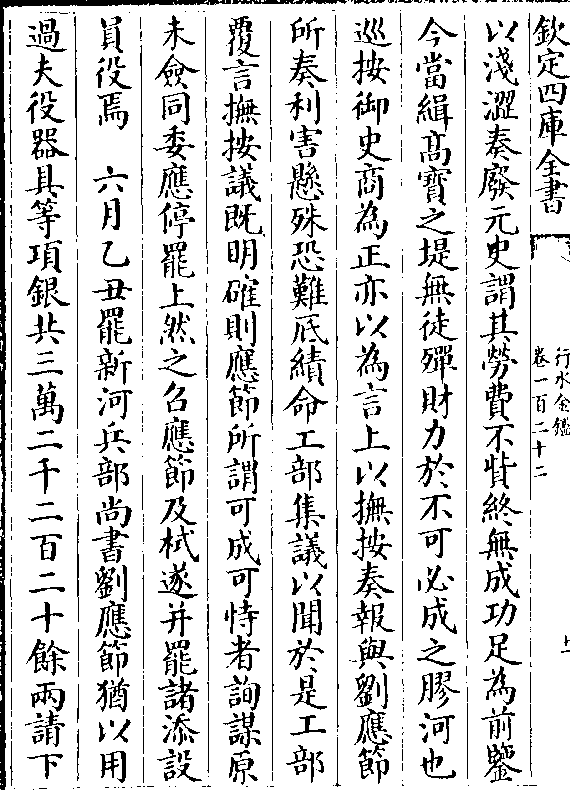 欽定四庫全書
行水金鑑
卷一百二十二
以淺澀奏廢元史謂其勞費不貲終無成功足為前鑒
今當緝髙寶之堤無徒殫財力於不可必成之膠河也
巡按御史商為正亦以為言上以撫按奏報與劉應節
所奏利害懸殊恐難底績命工部集議以聞於是工部
覆言撫按議既明確則應節所謂可成可恃者詢謀原
未僉同委應停罷上然之召應節及栻遂并罷諸添設
員役焉　六月乙丑罷新河兵部尚書劉應節猶以用
過夫役器具等項銀共三萬二千二百二十餘兩請下